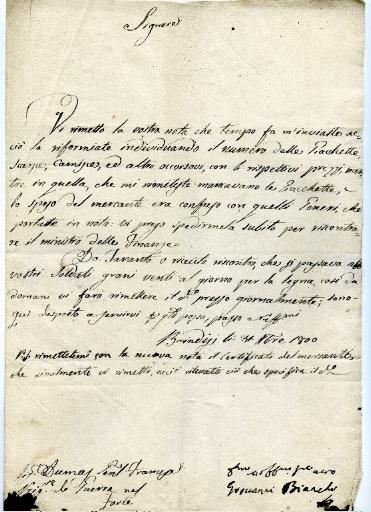 Signore
Vi rimetto la vostra nota che tempo fa m'inviaste, ac
ciò la riformiate individuando il numero delle Giacchette
Scarpe, Camisce, ed altro occorsovi, con li rispettivi prezzi, men
tre in quella, che mi rimetteste mancavano le Giacchette, e
lo speso del mercante era confuso con quelli Generi, che
portaste in nota. vi prego spedirmela subito per riscontra
re il ministro delle Finanze.
Da Taranto o avuto riscontro, che si passava alli
vostri Soldati grani venti al giorno per la legna, così da
domani vi farò rimettere il d.o prezzo giornalmente; sono
qui disposto a servirvi per q.to posso, passo a raffermi
Brindisi li 31 8bre 1800
P.S. rimettetemi con la nuova nota il Certificato del mercante
che similmente vi rimetto, acciò rilevate ciò che specifica il d.o
Dumas Gen.l Francese
Prig.o di Guerra nel
Forte
Giovanni Bianchi